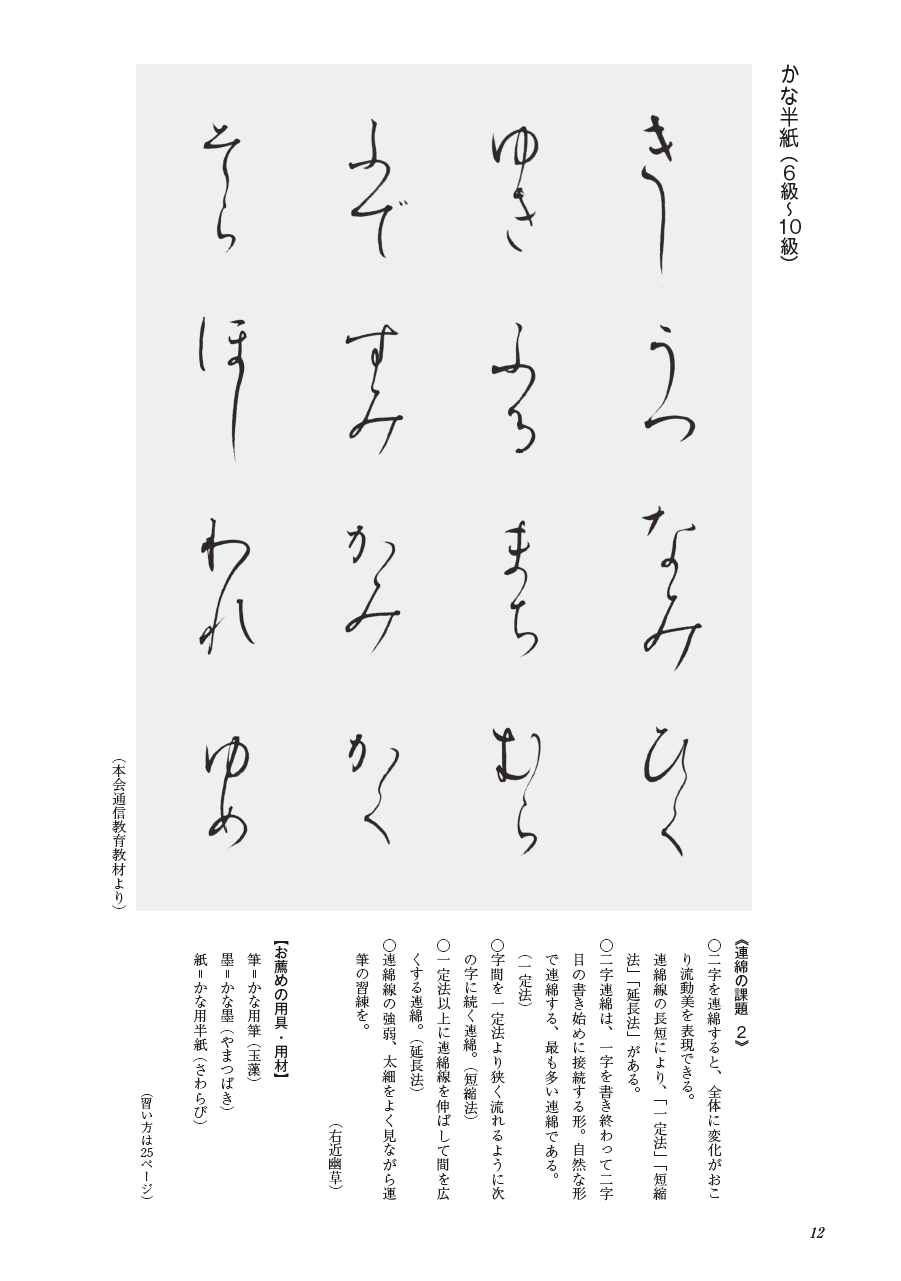 かな半紙（6級～10級）
きし うつ なみ ひく
ゆき ふる まち むら
ふで すみ かみ かく
そら ほし われ ゆめ
（本会通信教育教材より）
《連綿の課題 2》
○二字を連綿すると、全体に変化がおこ
り流動美を表現できる。
連綿線の長短により、「一定法」「短縮
法」「延長法」がある。
○二字連綿は、一字を書き終わって二字
目の書き始めに接続する形。自然な形
で連綿する、最も多い連綿である。
（一定法）
○字間を一定法より狭く流れるように次
の字に続く連綿。（短縮法）
○一定法以上に連綿線を伸ばして間を広
くする連綿。（延長法）
○連綿線の強弱、太細をよく見ながら運
筆の習練を。
（右近幽草）
【お薦めの用具・用材】
筆＝かな用筆（玉藻）
墨＝かな墨（やまつばき）
紙＝かな用半紙（さわらび）
（習い方は25ページ）
12